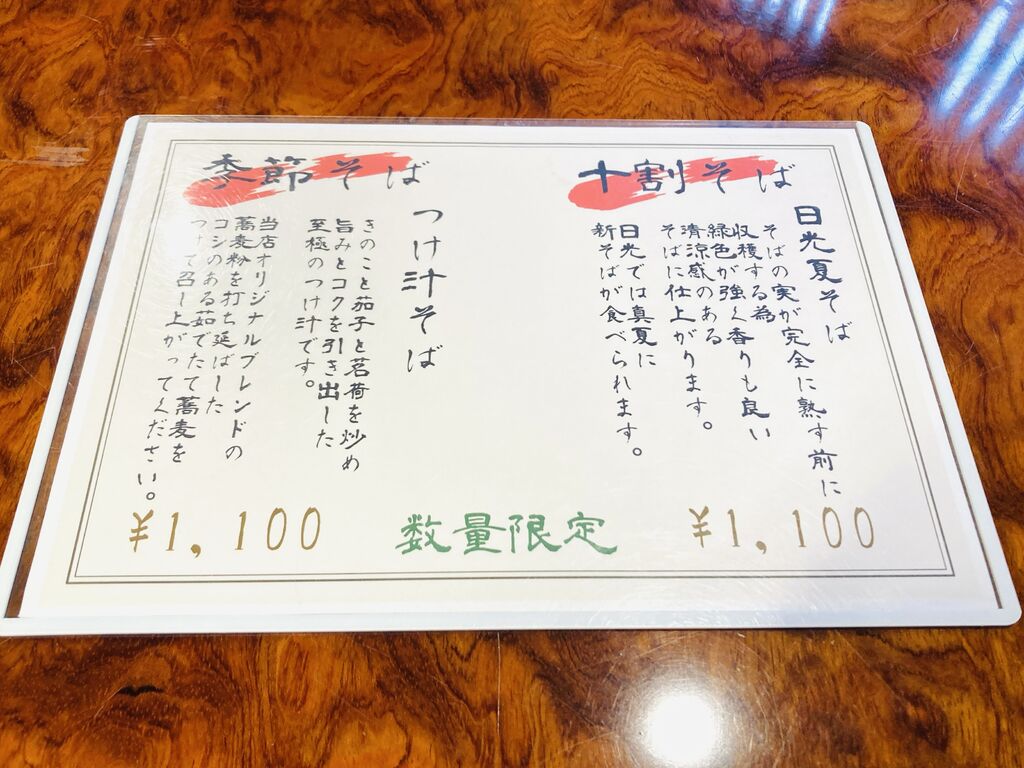 十割そば
日光夏そば
そばの実が完全に熟す前に
収穫する為
緑色が強く香りも良い
清涼感のある
そばに仕上がります。
日光では真夏に
新そばが食べられます。
¥1,100
数量限定
季節そば
つけ汁そば
きのこと茄子と茗荷を炒め
旨みとコクを引き出した
至極のつけ汁です。
当店オリジナルブレンドの
蕎麦粉を打ち延ばした
コシのある茹でたて蕎麦を
つけて召し上がってください。
¥1,100